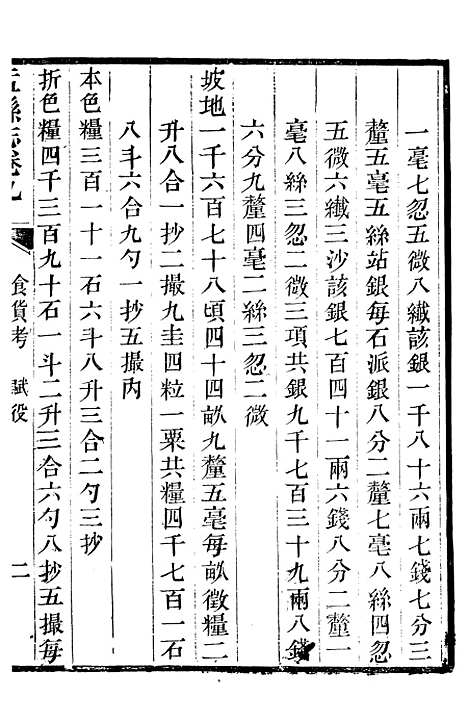 一毫七忽五微八纖該銀一千八十六兩七錢七分三
釐五毫五絲站銀每石派銀八分二釐七毫八絲四忽
五微六纖三沙該銀七百四十一兩六錢八分二釐一
毫八絲三忽二微三項共銀九千七百三十九兩八錢
六分九釐四毫二絲三忽二微
坡地一千六百七十八頃四十四畝九釐五毫每畝徵糧二
升八合一抄二撮九圭四粒一粟共糧四千七百一石
八斗六合九勺一抄五撮內
本色糧三百一十一石六斗八升三合二勺三抄
折色糧四千三百九十石一斗二升三合六勺八抄五撮每
縣志卷九
食貨考 賦役
二